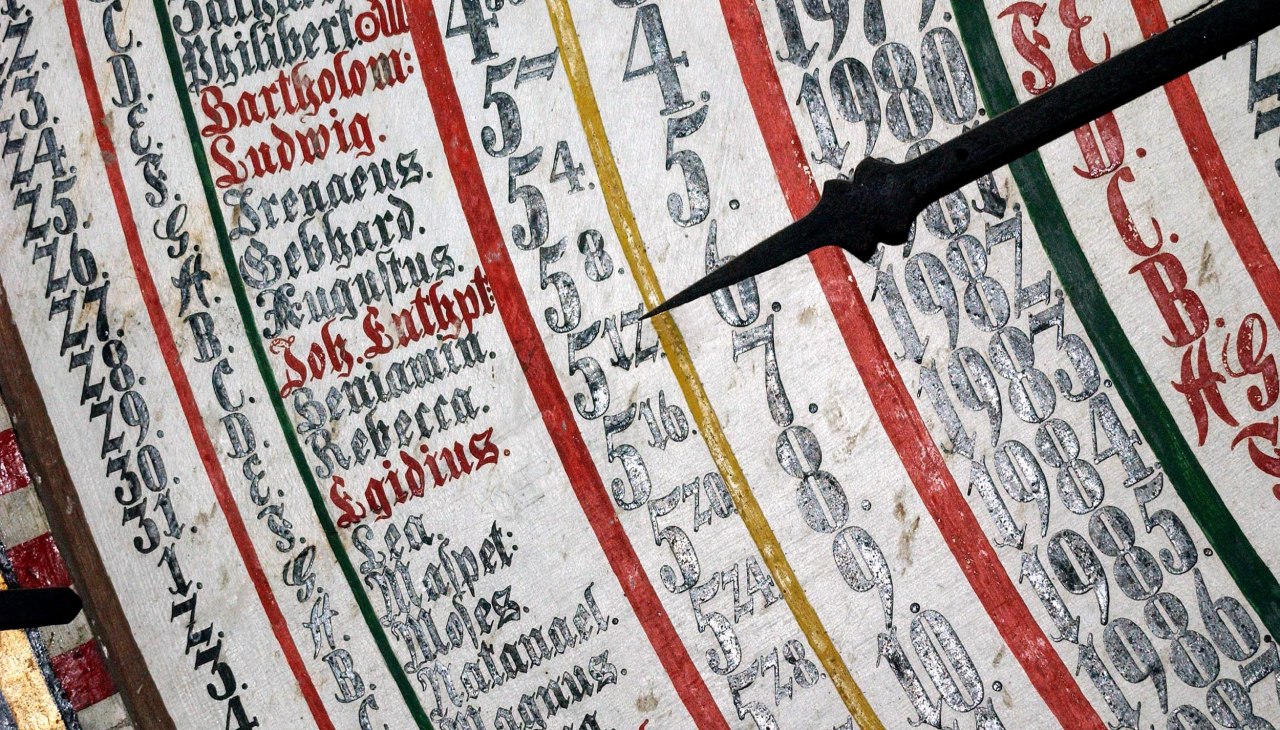 23.
24.
25.
26.
27.
28.
29.
30.
31.
1.
2.
3.
4
C.
D.
E.
F.
G.
A.
B.
C.
D.
E.
F.
G.
A.
B.
C.
Philibert.
Bartholom:
Ludwig.
Irenaeus.
Gebhard.
Auguſtus.
Joh. Enthpt:
Benjamin.
Rebecca.
Egidius.
Lea.
Maſpet:
Moſes.
Natanael.
Magnus.
5
5 4.
5 8.
5 12
5 16.
5 20
5 24
5 28.
4.
5.
6.
7.
8.
9.
10.
1980.
1982.
1983.
1984
1985.
1986.
F E
D.
C.
B.
A G